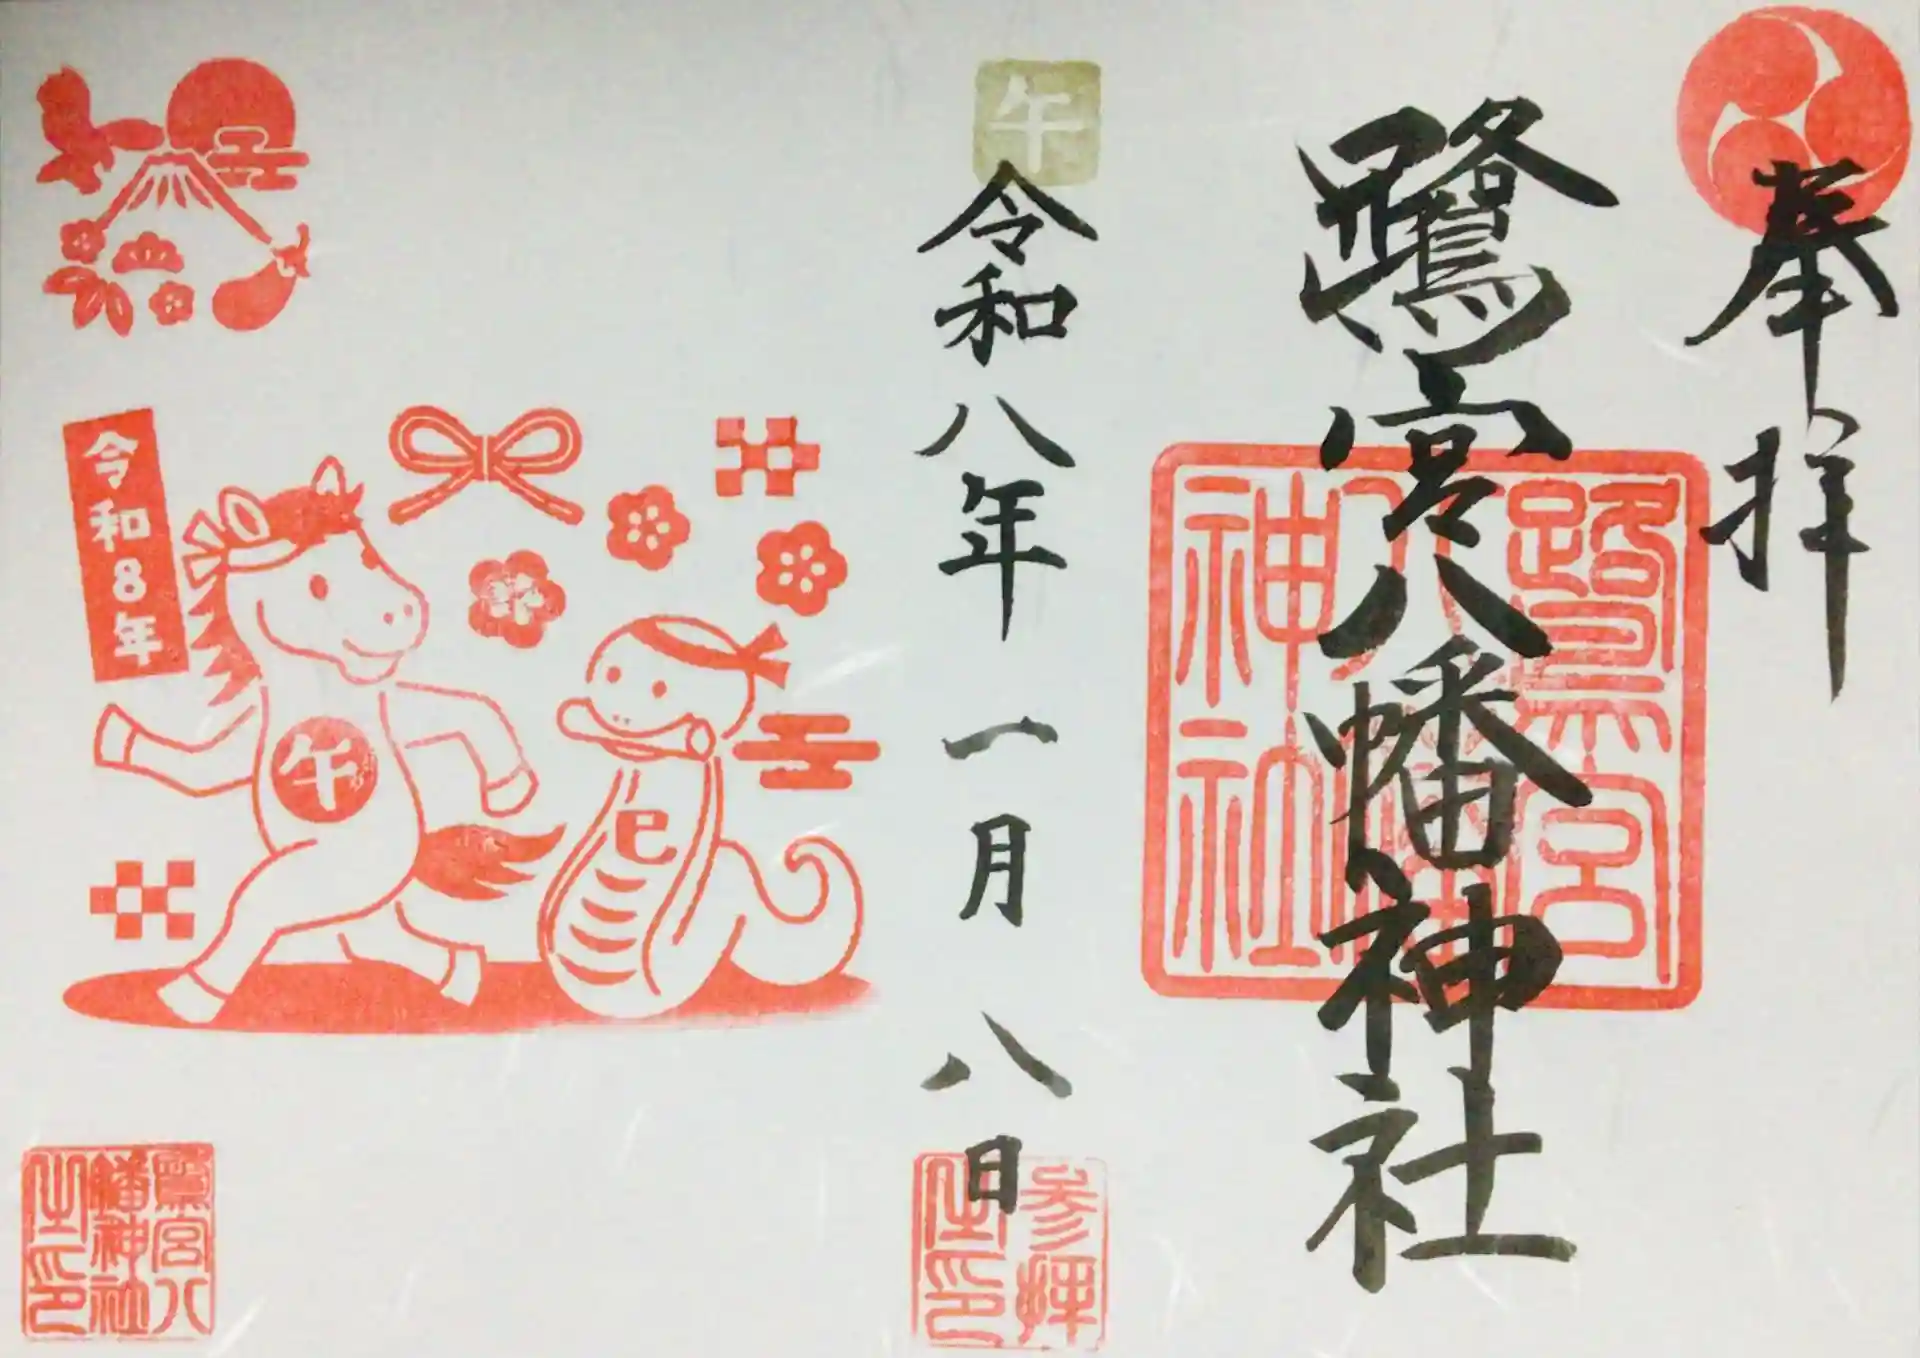 奉拝
鷺宮八幡神社
鷺宮
八幡
神社
午
令和八年一月八日
参拝
之印
令和8年
午
巳
鷺宮八
幡神社
之印